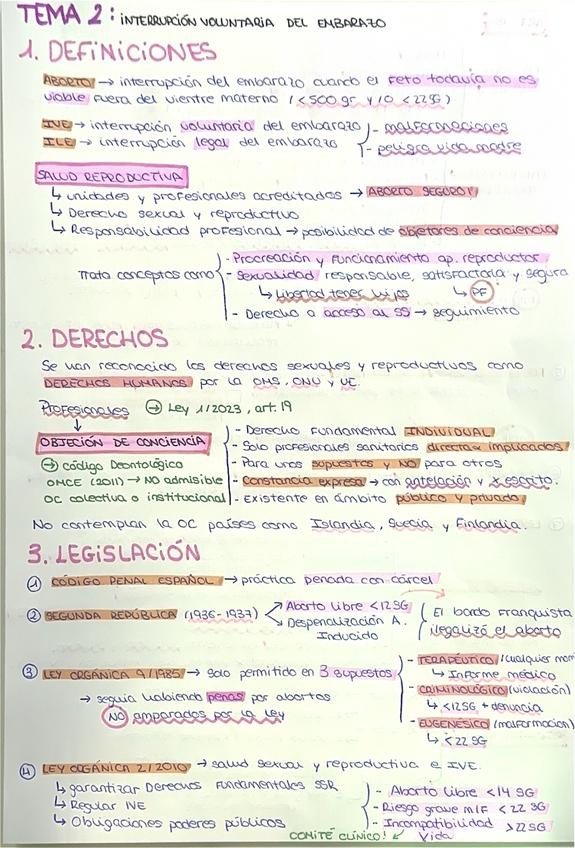 TEMA 2: INTERRUPCIÓN VOLUNTARIA DEL EMBARAZO
1. DEFINICIONES
ABORTO → interrupción del embarazo cuando el feto todavía no es
viable fuera del vientre materno (<500 gr y/o <22SG)
IVE → interrupción voluntaria del embarazo - malformaciones
ILE → interrupción legal del embarazo - peligra vida madre
SALUD REPRODUCTIVA
↳ unidades y profesionales acreditados → ABORTO SEGURO!
↳ Derecho sexual y reproductivo
↳ Responsabilidad profesional → posibilidad de objetores de conciencia
- Procreación y funcionamiento ap. reproductor
Trata conceptos como - Sexualidad responsable, satisfactoria y segura
↳ libertad tener hijos ↳ PF
- Derecho a acceso al SS → seguimiento
2. DERECHOS
Se van reconocido los derechos sexuales y reproductivos como
DERECHOS HUMANOS por la OMS, ONU y UE.
Profesionales → Ley 1/2023, art. 19
↓
OBJECIÓN DE CONCIENCIA - Derecho fundamental INDIVIDUAL
- Solo profesionales sanitarios directam implicados
→ código Deontológico - Para unos supuestos y NO para otros
OMCE (2011) → NO admisible - Constancia expresa → con antelación y x escrito.
OC colectiva o institucional - Existente en ámbito público y privado
No contemplan la OC países como Islandia, Suecia y Finlandia.
3. LEGISLACIÓN
① CÓDIGO PENAL ESPAÑOL → práctica penada con cárcel
② SEGUNDA REPÚBLICA (1936-1937) Aborto Libre <12SG El bando Franquista
Despenalización A. ilegalizó el aborto
Inducido
③ LEY ORGÁNICA 9/1985 → solo permitido en 3 supuestos - TERAPÉUTICO (cualquier mom
↳ Informe médico
→ seguía habiendo penas por abortos - CRIMINOLÓGICO (violación)
NO amparados por la ley ↳ <12SG + denuncia
- EUGENÉSICO (malformación)
↳ <22 SG
④ LEY ORGÁNICA 2/2010 → salud sexual y reproductiva e IVE.
↳ garantizar Derechos fundamentales SSR - Aborto libre <14 SG
↳ Regular IVE - Riesgo grave M/F <22 SG
↳ Obligaciones poderes públicos - Incompatibilidad >22SG
COMITÉ CLÍNICO! Vida